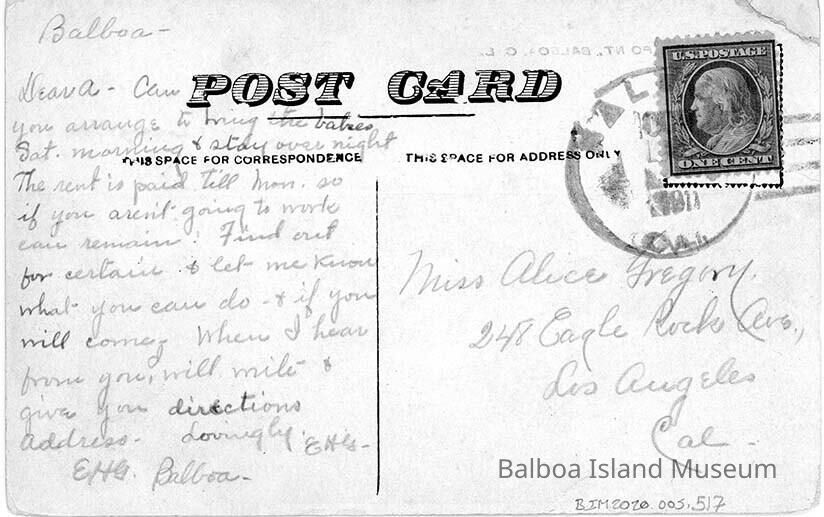 Balboa -
Dear A - Can
you arrange to bring the babes
Sat. morning & stay over night
The rent is paid till Mon. so
if you aren't going to work
can remain. Find out
for certain & let me know
what you can do - & if you
will come. When I hear
from you, will write &
give you directions
address. Lovingly. EHG-
EHG. Balboa -
POST CARD
THIS SPACE FOR CORRESPONDENCE
THIS SPACE FOR ADDRESS ONLY
U.S. POSTAGE
ONE CENT
1911
CAL
Miss Alice Gregory.
248 Eagle Rock Ave.,
Los Angeles
Cal -
Balboa Island Museum
BIM2020.005.517